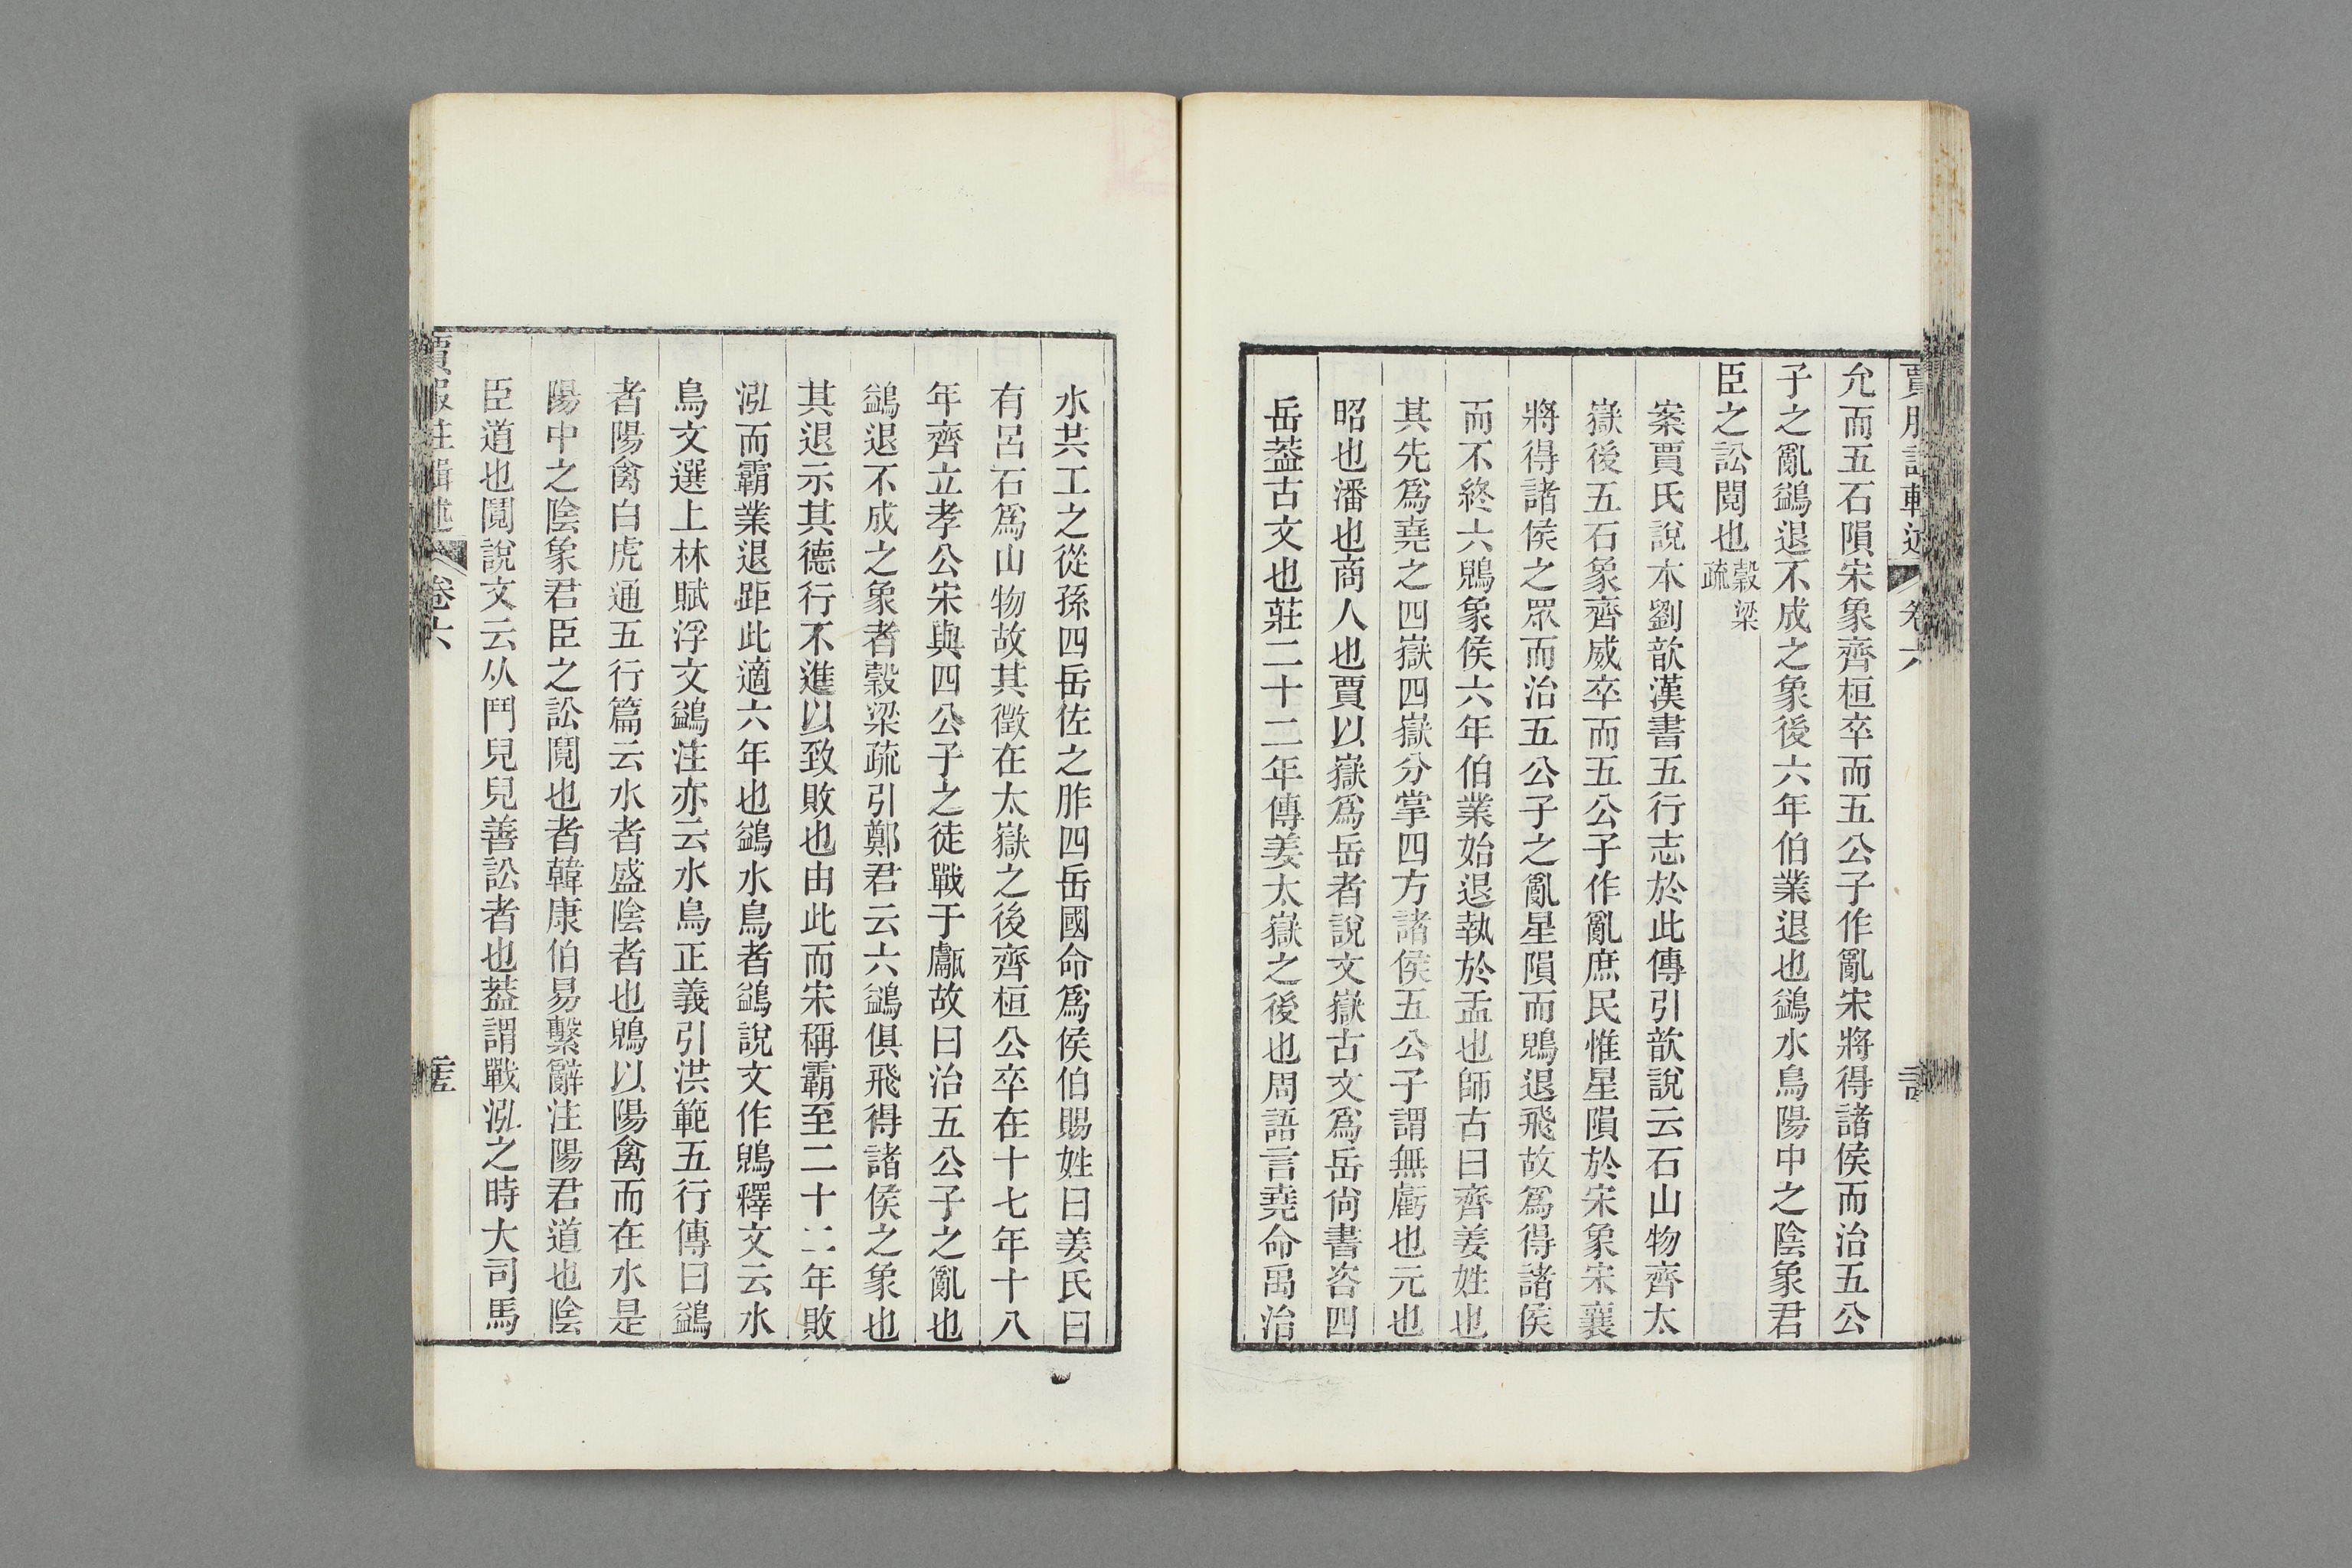 允而五石隕宋象齊桓卒而五公子作亂宋將得諸侯而治五公
子之亂鷁退不成之象後六年伯業退也鷁水鳥陽中之陰象君
臣之訟鬩也穀梁疏
案賈氏說本劉歆漢書五行志於此傳引歆說云石山物齊太
嶽後五石象齊威卒而五公子作亂庶民惟星隕於宋象宋襄
將得諸侯之眾而治五公子之亂星隕而鶂退飛故爲得諸侯
而不終六鶂象侯六年伯業始退執於盂也師古曰齊姜姓也
其先爲堯之四嶽四嶽分掌四方諸侯五公子謂無虧也元也
昭也潘也商人也賈以嶽爲岳者說文嶽古文爲岳尚書咨四
岳葢古文也莊二十二年傳姜太嶽之後也周語言堯命禹治
水共工之從孫四岳佐之胙四岳國命爲侯伯賜姓曰姜氏曰
有呂石爲山物故其徵在太嶽之後齊桓公卒在十七年十八
年齊立孝公宋與四公子之徒戰于甗故曰治五公子之亂也
鷁退不成之象者穀梁疏引鄭君云六鷁俱飛得諸侯之象也
其退示其德行不進以致敗也由此而宋稱霸至二十二年敗
泓而霸業退距此適六年也鷁水鳥者鷁說文作鶂釋文云水
鳥文選上林賦浮文鷁注亦云水鳥正義引洪範五行傳曰鷁
者陽禽白虎通五行篇云水者盛陰者也鶂以陽禽而在水是
陽中之陰象君臣之訟鬩也者韓康伯易繫辭注陽君道也陰
臣道也鬩說文云从鬥兒兒善訟者也葢謂戰泓之時大司馬
賈服注輯述 卷六